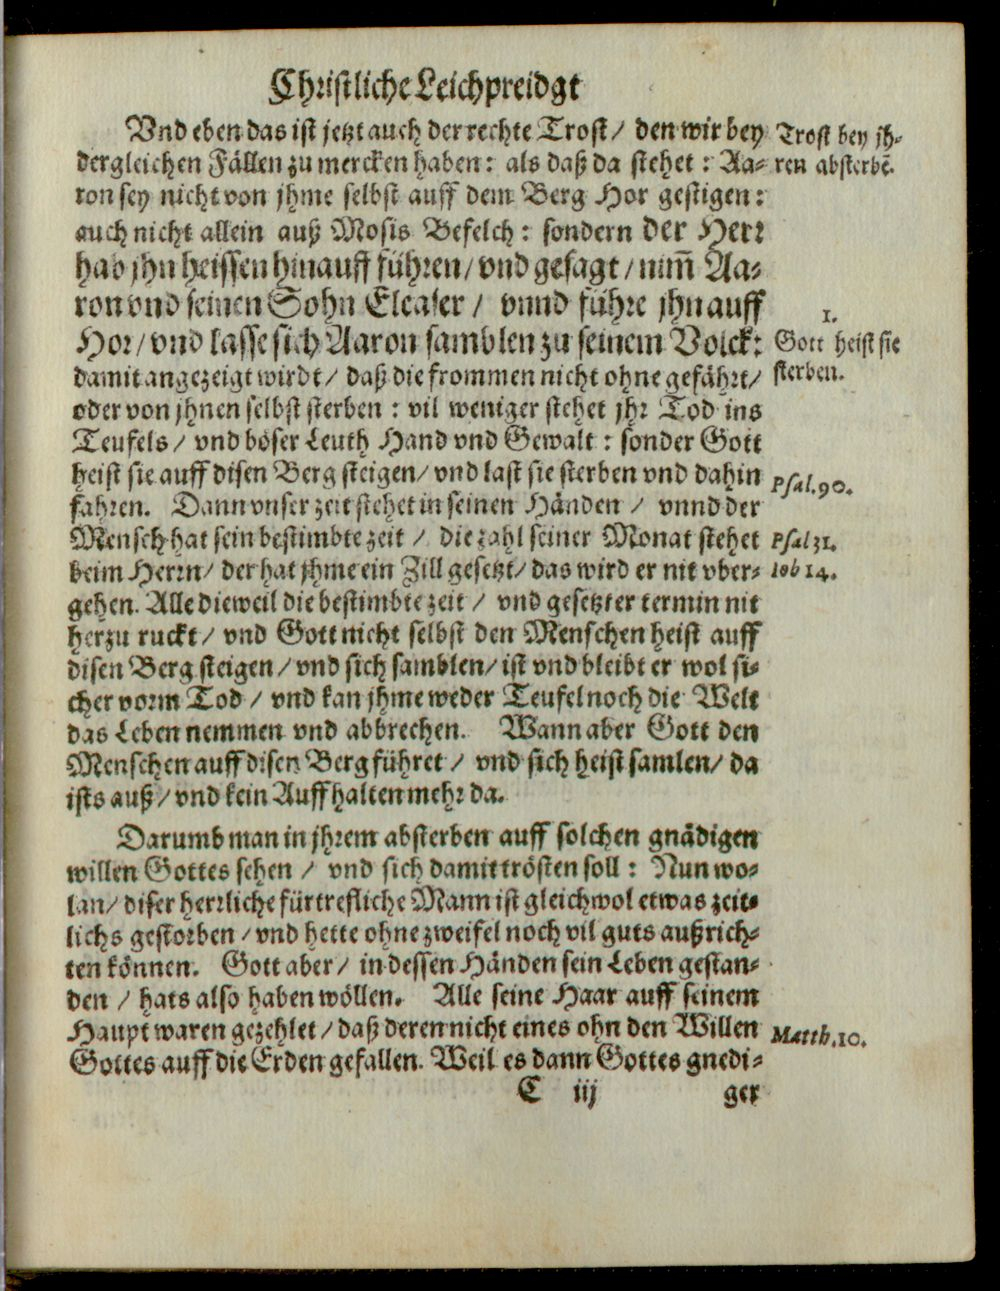 Christliche Leichpreidgt
Vnd eben das ist jetzt auch der rechte Trost / den wir bey
dergleichen Fällen zu mercken haben: als daß da stehet: Aa-
ron sey nicht von jhme selbst auff dem Berg Hor gestigen:
auch nicht allein auß Mosis Befelch: sondern der Herr
hab jhn heissen hinauff führen / vnd gesagt / nim̃ Aa-
ron vnd seinen Sohn Eleaser / vnnd führe jhn auff
Hor / vnd lasse sich Aaron samblen zu seinem Volck:
damit angezeigt wirdt / daß die frommen nicht ohne gefährt /
oder von jhnen selbst sterben: vil weniger stehet jhr Tod ins
Teufels / vnd böser Leuth Hand vnd Gewalt: sonder Gott
heist sie auff disen Berg steigen / vnd last sie sterben vnd dahin
fahren. Dann vnser zeit stehet in seinen Händen / vnnd der
Mensch hat sein bestimbte zeit / die zahl seiner Monat stehet
beim Herrn / der hat jhme ein Zill gesetzt / das wird er nit vber-
gehen. Alle dieweil die bestimbte zeit / vnd gesetzter termin nit
herzu ruckt / vnd Gott nicht selbst den Menschen heist auff
disen Berg steigen / vnd sich samblen / ist vnd bleibt er wol si-
cher vorm Tod / vnd kan jhme weder Teufel noch die Welt
das Leben nemmen vnd abbrechen. Wann aber Gott den
Menschen auff disen Berg führet / vnd sich heist samlen / da
ists auß / vnd kein Auffhalten mehr da.
Darumb man in jhrem absterben auff solchen gnädigen
willen Gottes sehen / vnd sich damit trösten soll: Nun wo-
lan / diser herrliche fürtrefliche Mann ist gleichwol etwas zeit-
lichs gestorben / vnd hette ohne zweifel noch vil guts außrich-
ten können. Gott aber / in dessen Händen sein Leben gestan-
den / hats also haben wöllen. Alle seine Haar auff seinem
Haupt waren gezehlet / daß deren nicht eines ohn den Willen
Gottes auff die Erden gefallen. Weil es dann Gottes gnedi-
C iij
ger
Trost bey jh-
ren absterbẽ.
1.
Gott heist sie
sterben.
Psal. 90.
Psal 31.
Iob 14.
Matth. 10.